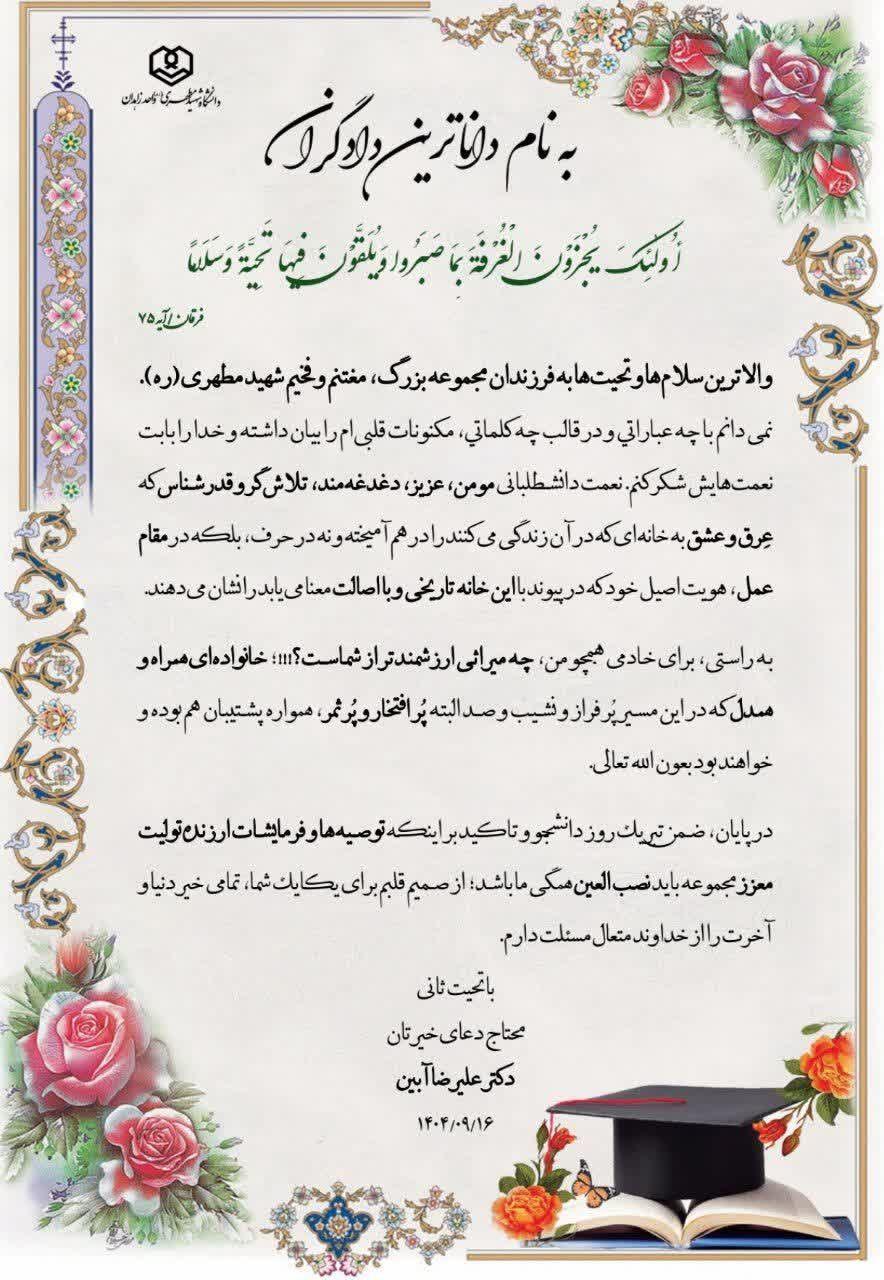 دانشگاه شهید مطهری واحد زاهدان
به نام داناترین دادگران
أُولَٰئِكَ يُجْزَوْنَ الْغُرْفَةَ بِمَا صَبَرُوا وَيُلَقَّوْنَ فِيهَا تَحِيَّةً وَسَلَامًا
فرقان/آیه ۷۵
والاترین سلام‌ها و تحیت‌ها به فرزندان مجموعه بزرگ، مغتنم و فخیم شهید مطهری (ره).
نمی دانم با چه عباراتي و در قالب چه کلماتي، مکنونات قلبی‌ام را بیان داشته و خدا را بابت
نعمت‌هایش شکر کنم. نعمت دانشطلبانی مومن، عزیز، دغدغه‌مند، تلاش‌گر و قدرشناس که
عِرق و عشق به خانه‌ای که در آن زندگی می‌کنند را در هم آمیخته و نه در حرف، بلکه در مقام
عمل، هویت اصیل خود که در پیوند با این خانه تاریخی و با اصالت معنا می‌یابد را نشان می‌دهند.
به راستی، برای خادمی همچو من، چه میراثی ارزشمندتر از شماست؟!!!؛ خانواده‌ای همراه و
همدل که در این مسیر پُر فراز و نشیب و صد البته پُر افتخار و پُر ثمر، همواره پشتیبان هم بوده و
خواهند بود بعون الله تعالی.
در پایان، ضمن تبریك روز دانشجو و تاکید بر اینکه توصیه‌ها و فرمایشات ارزنده تولیت
معزز مجموعه باید نصب العین همگی ما باشد؛ از صمیم قلبم برای یکایك شما، تمامی خیر دنیا و
آخرت را از خداوند متعال مسئلت دارم.
با تحیت ثانی
محتاج دعای خیرتان
دکتر علیرضا آبین
۱۴۰۴/۰۹/۱۶